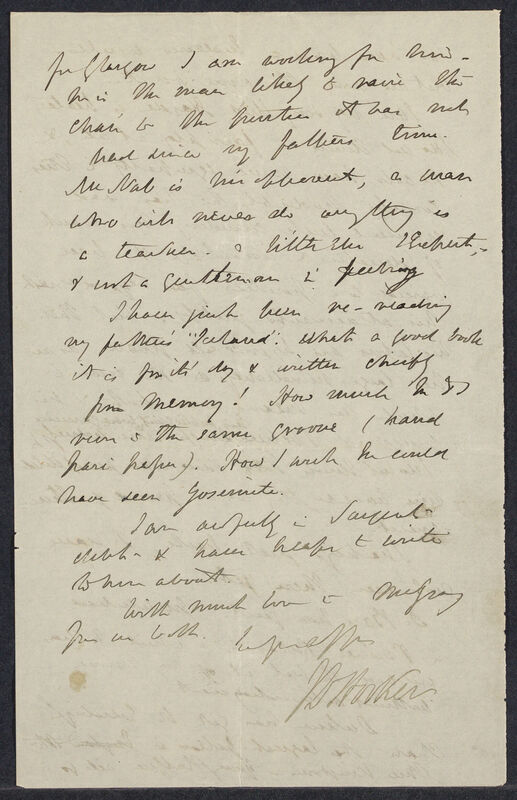 for Glasgow I am working for him –
he is the man likely to raise the
chair to the position it has not
had since my fathers time.
McNab is heir apparent, a man
who will never do anything as
a teacher – & little else I expect, –
& not a gentleman in feeling
I have just been re-reading
my father's "Iceland". What a good book
it is for its day & written chiefly
from memory! How much he &
were in the same groove (haud
pari passu). How I wish he could
have seen Yosemite.
I am awfully in Sargent's
debt & have heaps to write
to him about.
With much love to Mrs Gray
from us both.
JD Hooker